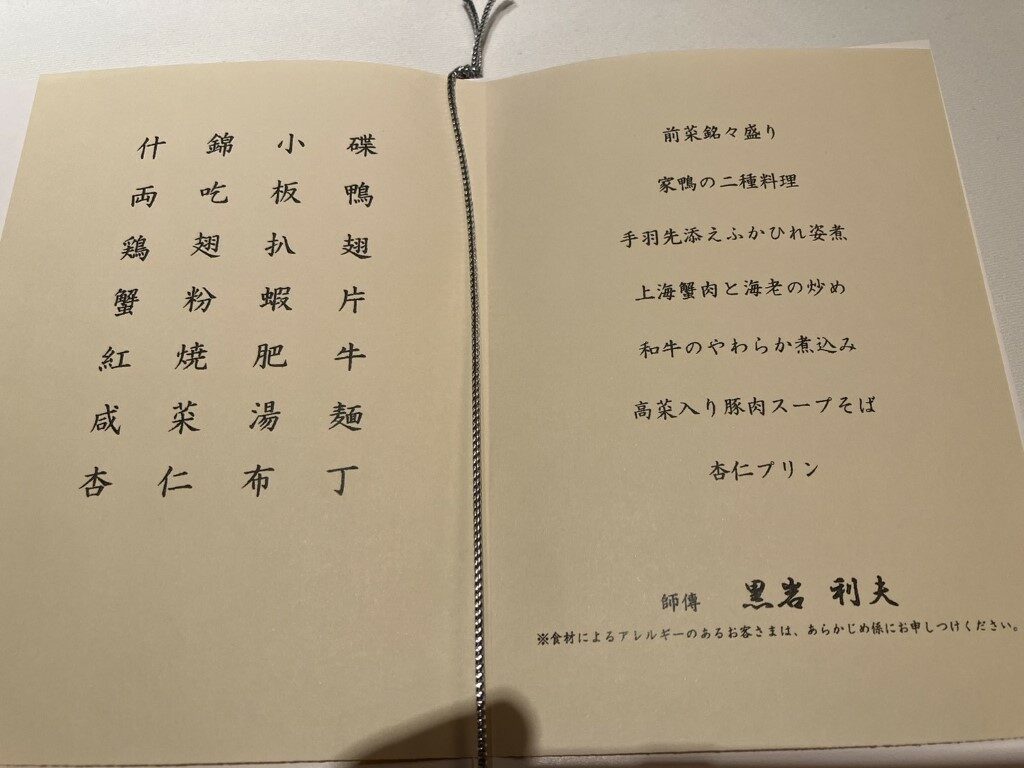 什錦小碟
両吃板鴨
鶏翅扒翅
蟹粉蝦片
紅焼肥牛
咸菜湯麺
杏仁布丁
前菜銘々盛り
家鴨の二種料理
手羽先添えふかひれ姿煮
上海蟹肉と海老の炒め
和牛のやわらか煮込み
高菜入り豚肉スープそば
杏仁プリン
師傅 黒岩 利夫
※食材によるアレルギーのあるお客さまは、あらかじめ係にお申しつけください。